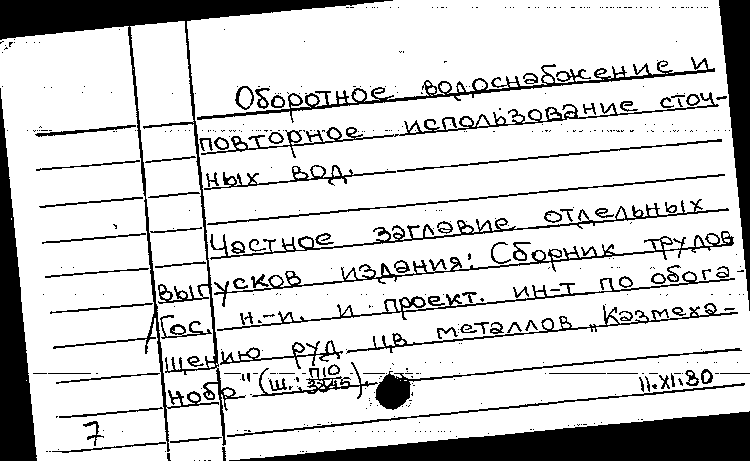 Оборотное водоснабжение и
повторное использование сточ-
ных вод.
Частное заглавие отдельных
выпусков издания: Сборник трудов
Гос. н.-и. и проект. ин-т по обога-
щению руд цв металлов „Казмеха=
нобр" (ш.: П10
3245).
11.XI.80
7